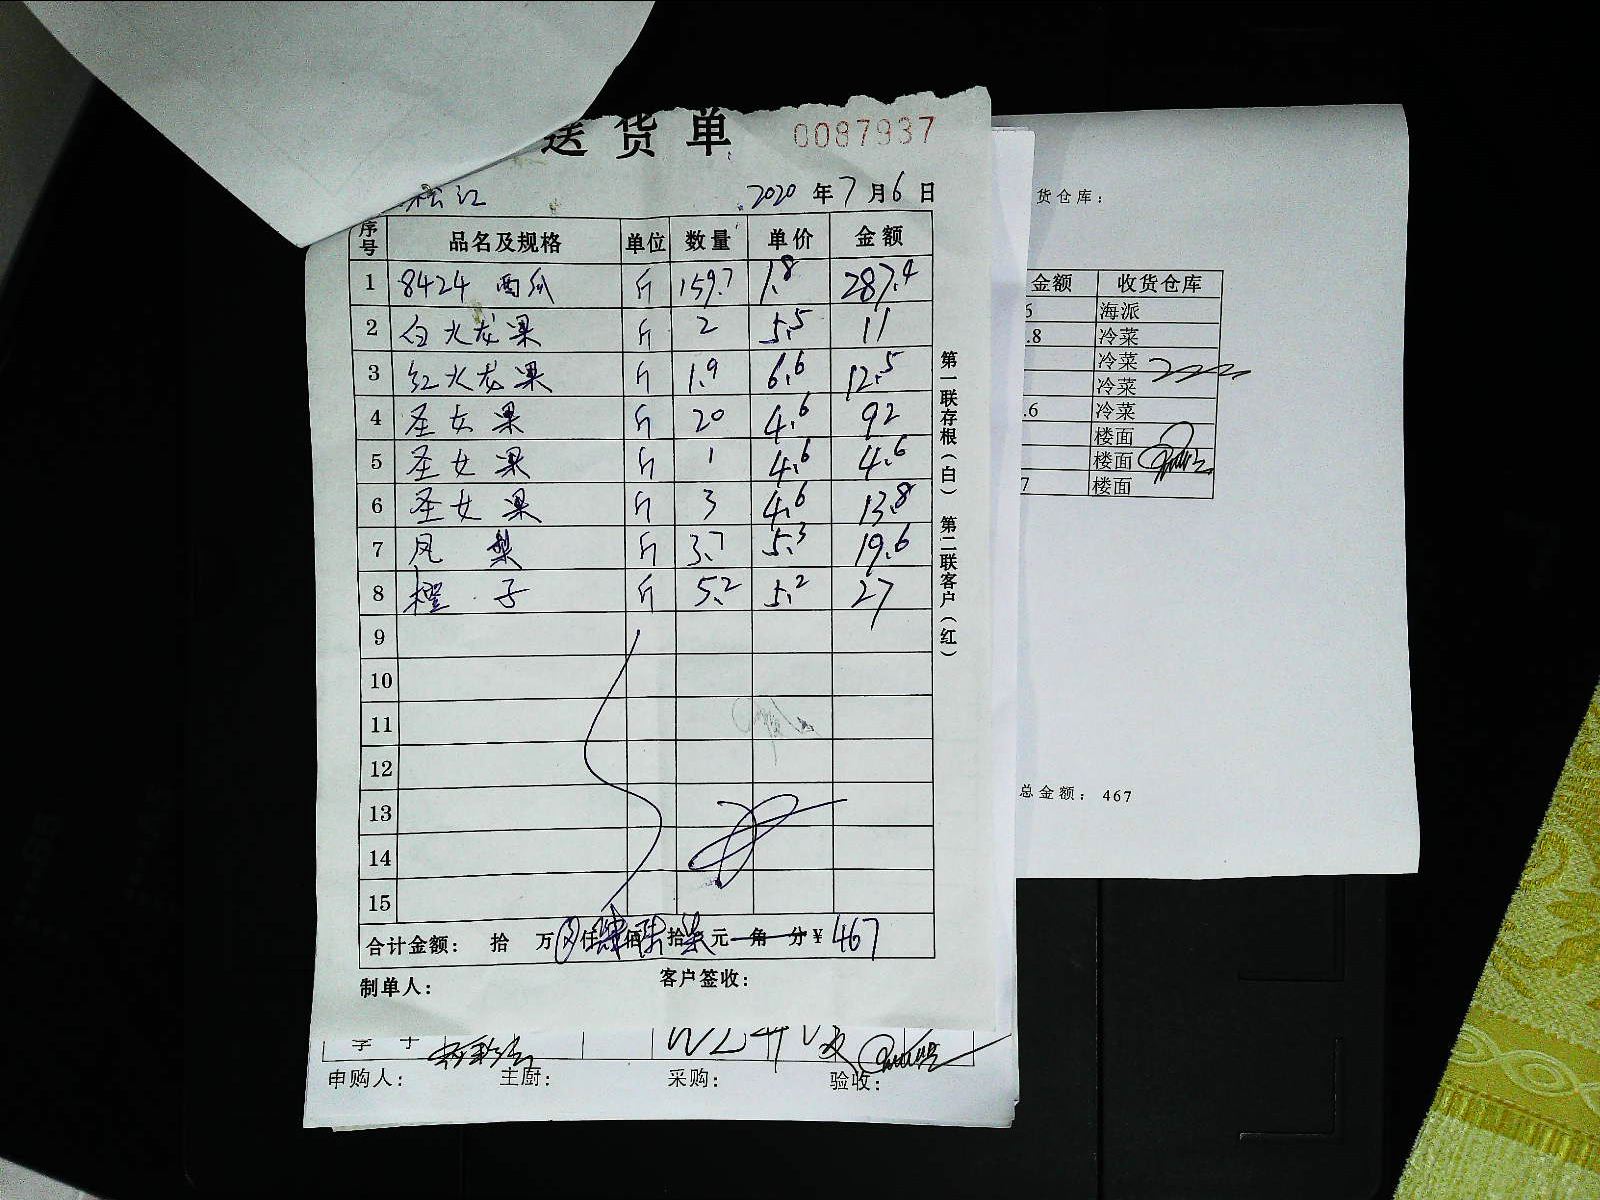 送货单 0087937
松江 2020 年 7 月 6 日
序号 品名及规格 单位 数量 单价 金额
1 8424 西瓜 斤 159.7 1.8 287.4
2 白火龙果 斤 2 5.5 11
3 红火龙果 斤 1.9 6.6 12.5
4 圣女果 斤 20 4.6 92
5 圣女果 斤 1 4.6 4.6
6 圣女果 斤 3 4.6 13.8
7 凤梨 斤 3.7 5.3 19.6
8 橙子 斤 5.2 5.2 27
9
10
11
12
13
14
15
合计金额: 拾 万 仟 肆 佰 陆 拾 柒 元 角 分 ¥ 467
制单人: 客户签收:
第一联存根(白) 第二联客户(红)
申购人: 主厨: 采购: 验收:
货仓库:
金额 收货仓库
6 海派
.8 冷菜
冷菜
冷菜
.6 冷菜
楼面
楼面
7 楼面
总金额: 467